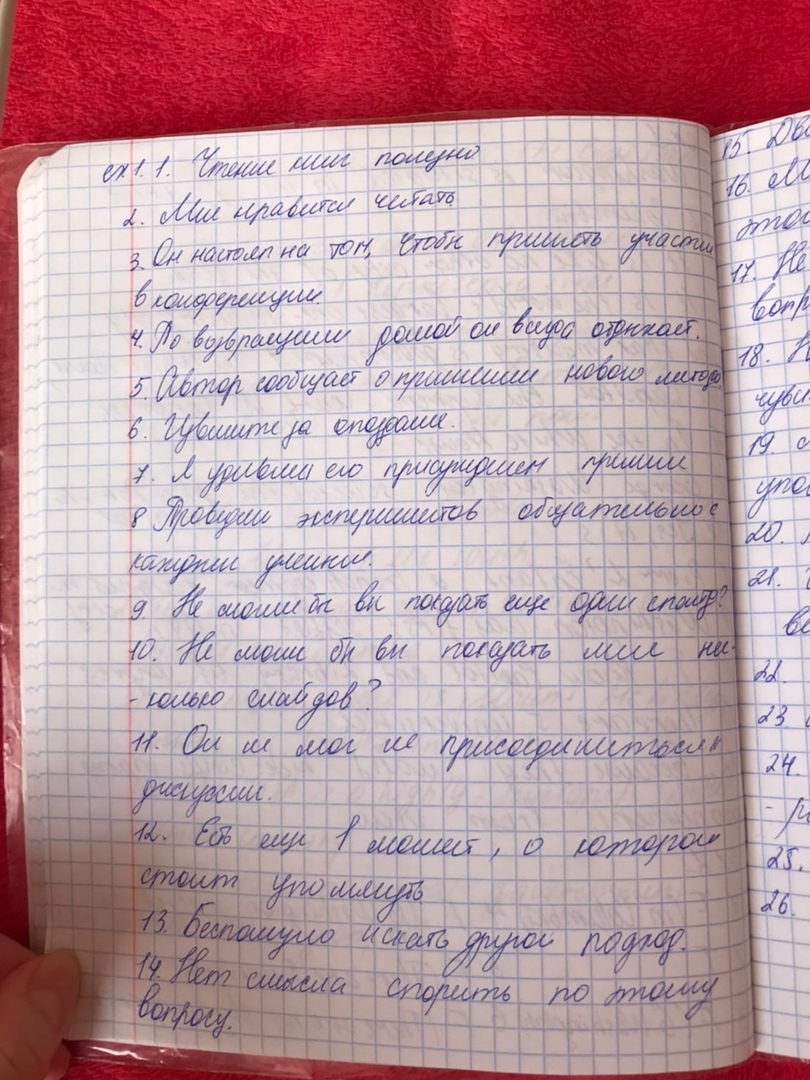 ex 1. 1. Чтение книг полезно
2. Мне нравится читать
3. Он настоял на том, чтобы принять участие
в конференции.
4. По возвращении домой он всегда отдыхает.
5. Автор сообщает о применении нового метода
6. Извините за опоздание.
7. Я удивлена его присуждением премии
8 Проведение экспериментов обязательно с
каждым учеником.
9. Не могли бы вы показать еще один слайд?
10. Не могли бы вы показать мне нес-
-колько слайдов?
11. Он не мог не присоединиться к
дискуссии.
12. Есть еще 1 момент, о котором
стоит упомянуть
13. Беспомузно искать другой подход.
14. Нет смысла спорить по этому
вопросу.
15.
16.
17. Не
18.
19.
20.
21.
22.
23
24.
25.
26.